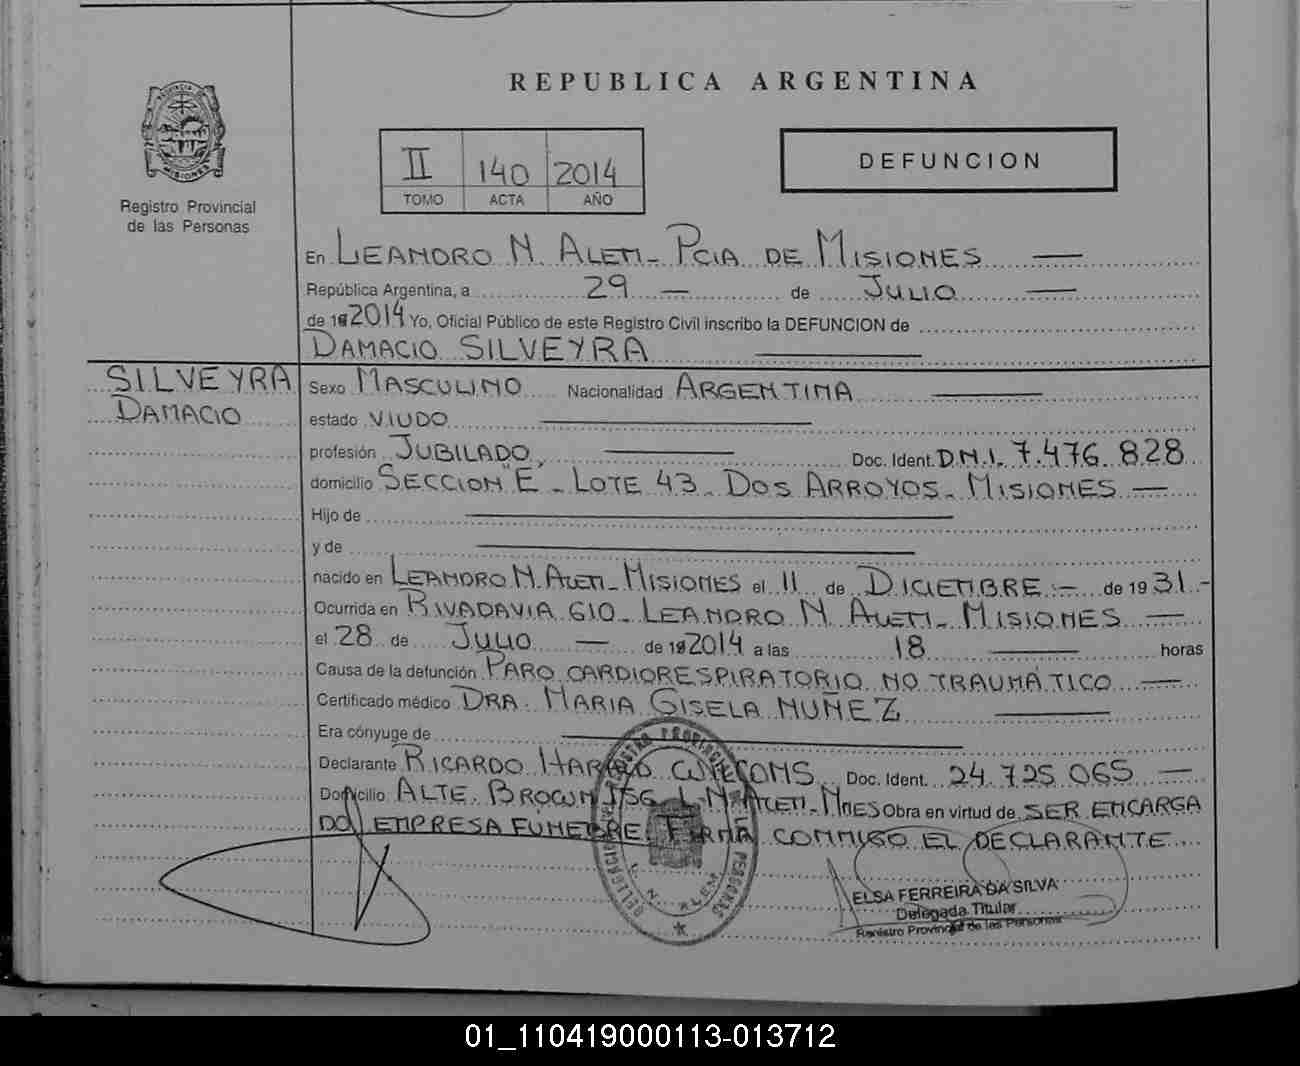 REPUBLICA ARGENTINA
PROVINCIA DE
MISIONES
II 140 2014
TOMO ACTA AÑO
DEFUNCION
Registro Provincial
de las Personas
En LEANDRO N. ALEM - PCIA DE MISIONES —
República Argentina, a 29 — de JULIO —
de 19 2014 Yo, Oficial Público de este Registro Civil inscribo la DEFUNCION de
DAMACIO SILVEYRA —
SILVEYRA
DAMACIO
Sexo MASCULINO Nacionalidad ARGENTINA —
estado VIUDO —
profesión JUBILADO, — Doc. Ident. D.N.I. 7.476.828
domicilio SECCION "E - LOTE 43 - DOS ARROYOS - MISIONES —
Hijo de —
y de —
nacido en LEANDRO N. ALEM - MISIONES el 11 de DICIEMBRE.- de 19 31.-
Ocurrida en RIVADAVIA 610 - LEANDRO N. ALEM - MISIONES —
el 28 de JULIO — de 19 2014 a las 18 — horas
Causa de la defunción PARO CARDIORESPIRATORIO NO TRAUMÁTICO —
Certificado médico DRA. MARIA GISELA NUÑEZ —
Era cónyuge de —
Declarante RICARDO Doc. Ident. 24.725.065 —
Domicilio ALTE. BROWN L.N. ALEM - MNES Obra en virtud de SER ENCARGA
DO EMPRESA FÚNEBRE. FIRMA CONMIGO EL DECLARANTE.
REGISTRO PROVINCIAL DE LAS PERSONAS
DELEGACION
L. N. ALEM
ELSA FERREIRA DA SILVA
Delegada Titular
Registro Provincial de las Personas
01_110419000113-013712